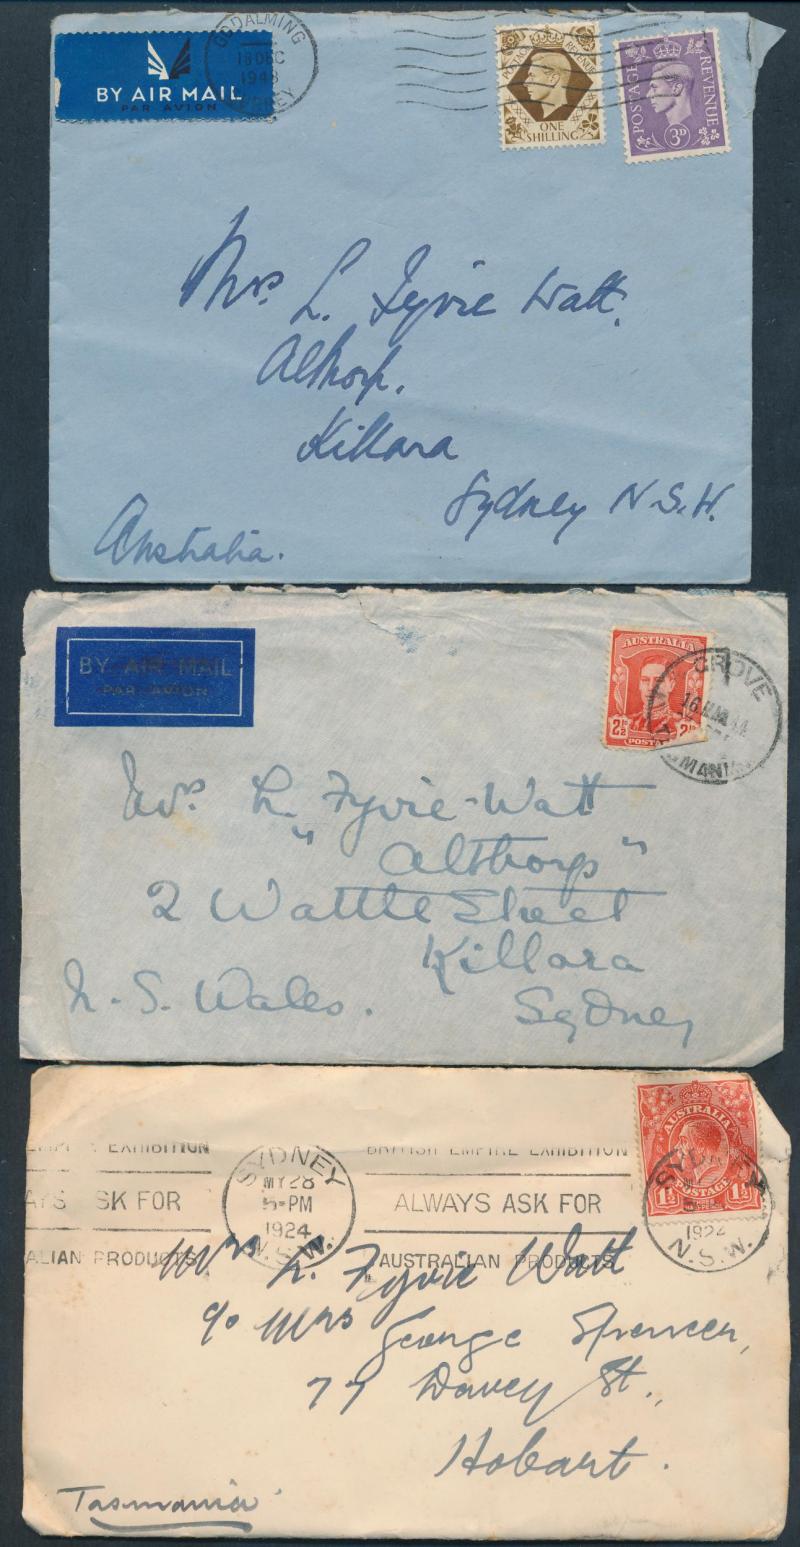 BY AIR MAIL
PAR AVION
GODALMING
18 DEC
1948
POSTAGE REVENUE
ONE
SHILLING
POSTAGE
REVENUE
3D
Mrs. L. Fyvie Watt.
Althorp.
Killara
Sydney N.S.W.
Australia.
BY AIR MAIL
PAR AVION
AUSTRALIA
2½D
POSTAGE
GROVE
TASMANIA
Mrs L. Fyvie-Watt
"Althorp"
2 Wattle Street
Killara
N. S. Wales.
Sydney
EMPIRE EXHIBITION
ALWAYS ASK FOR
AUSTRALIAN PRODUCTS
SYDNEY
MY 28
5-PM
1924
N.S.W.
BRITISH EMPIRE EXHIBITION
ALWAYS ASK FOR
AUSTRALIAN PRODUCTS
AUSTRALIA
1½
POSTAGE
1½
SYDNEY
1924
N.S.W.
Mrs L. Fyvie Watt
c/o Mrs George Spencer,
77 Davey St.,
Hobart.
Tasmania